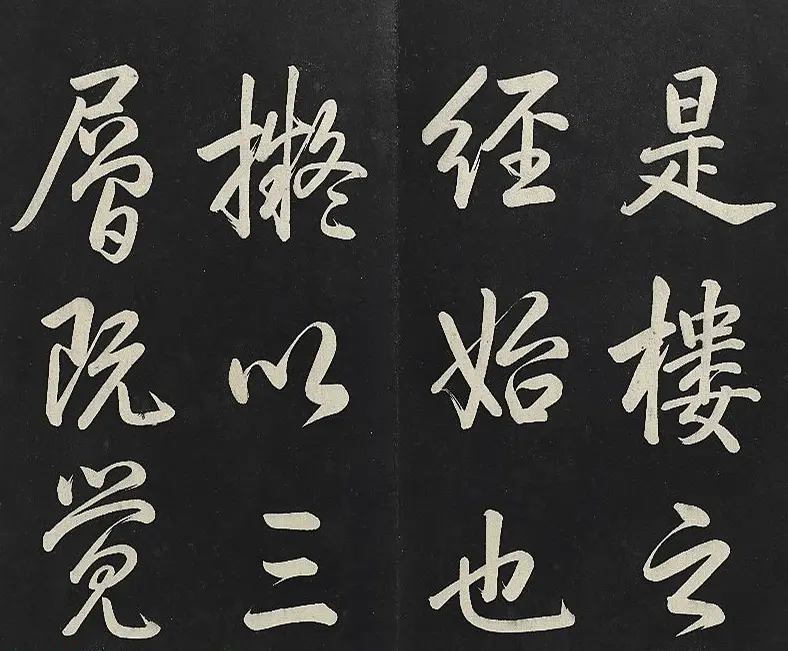 是樓之
經始也
擬以三
層既覺